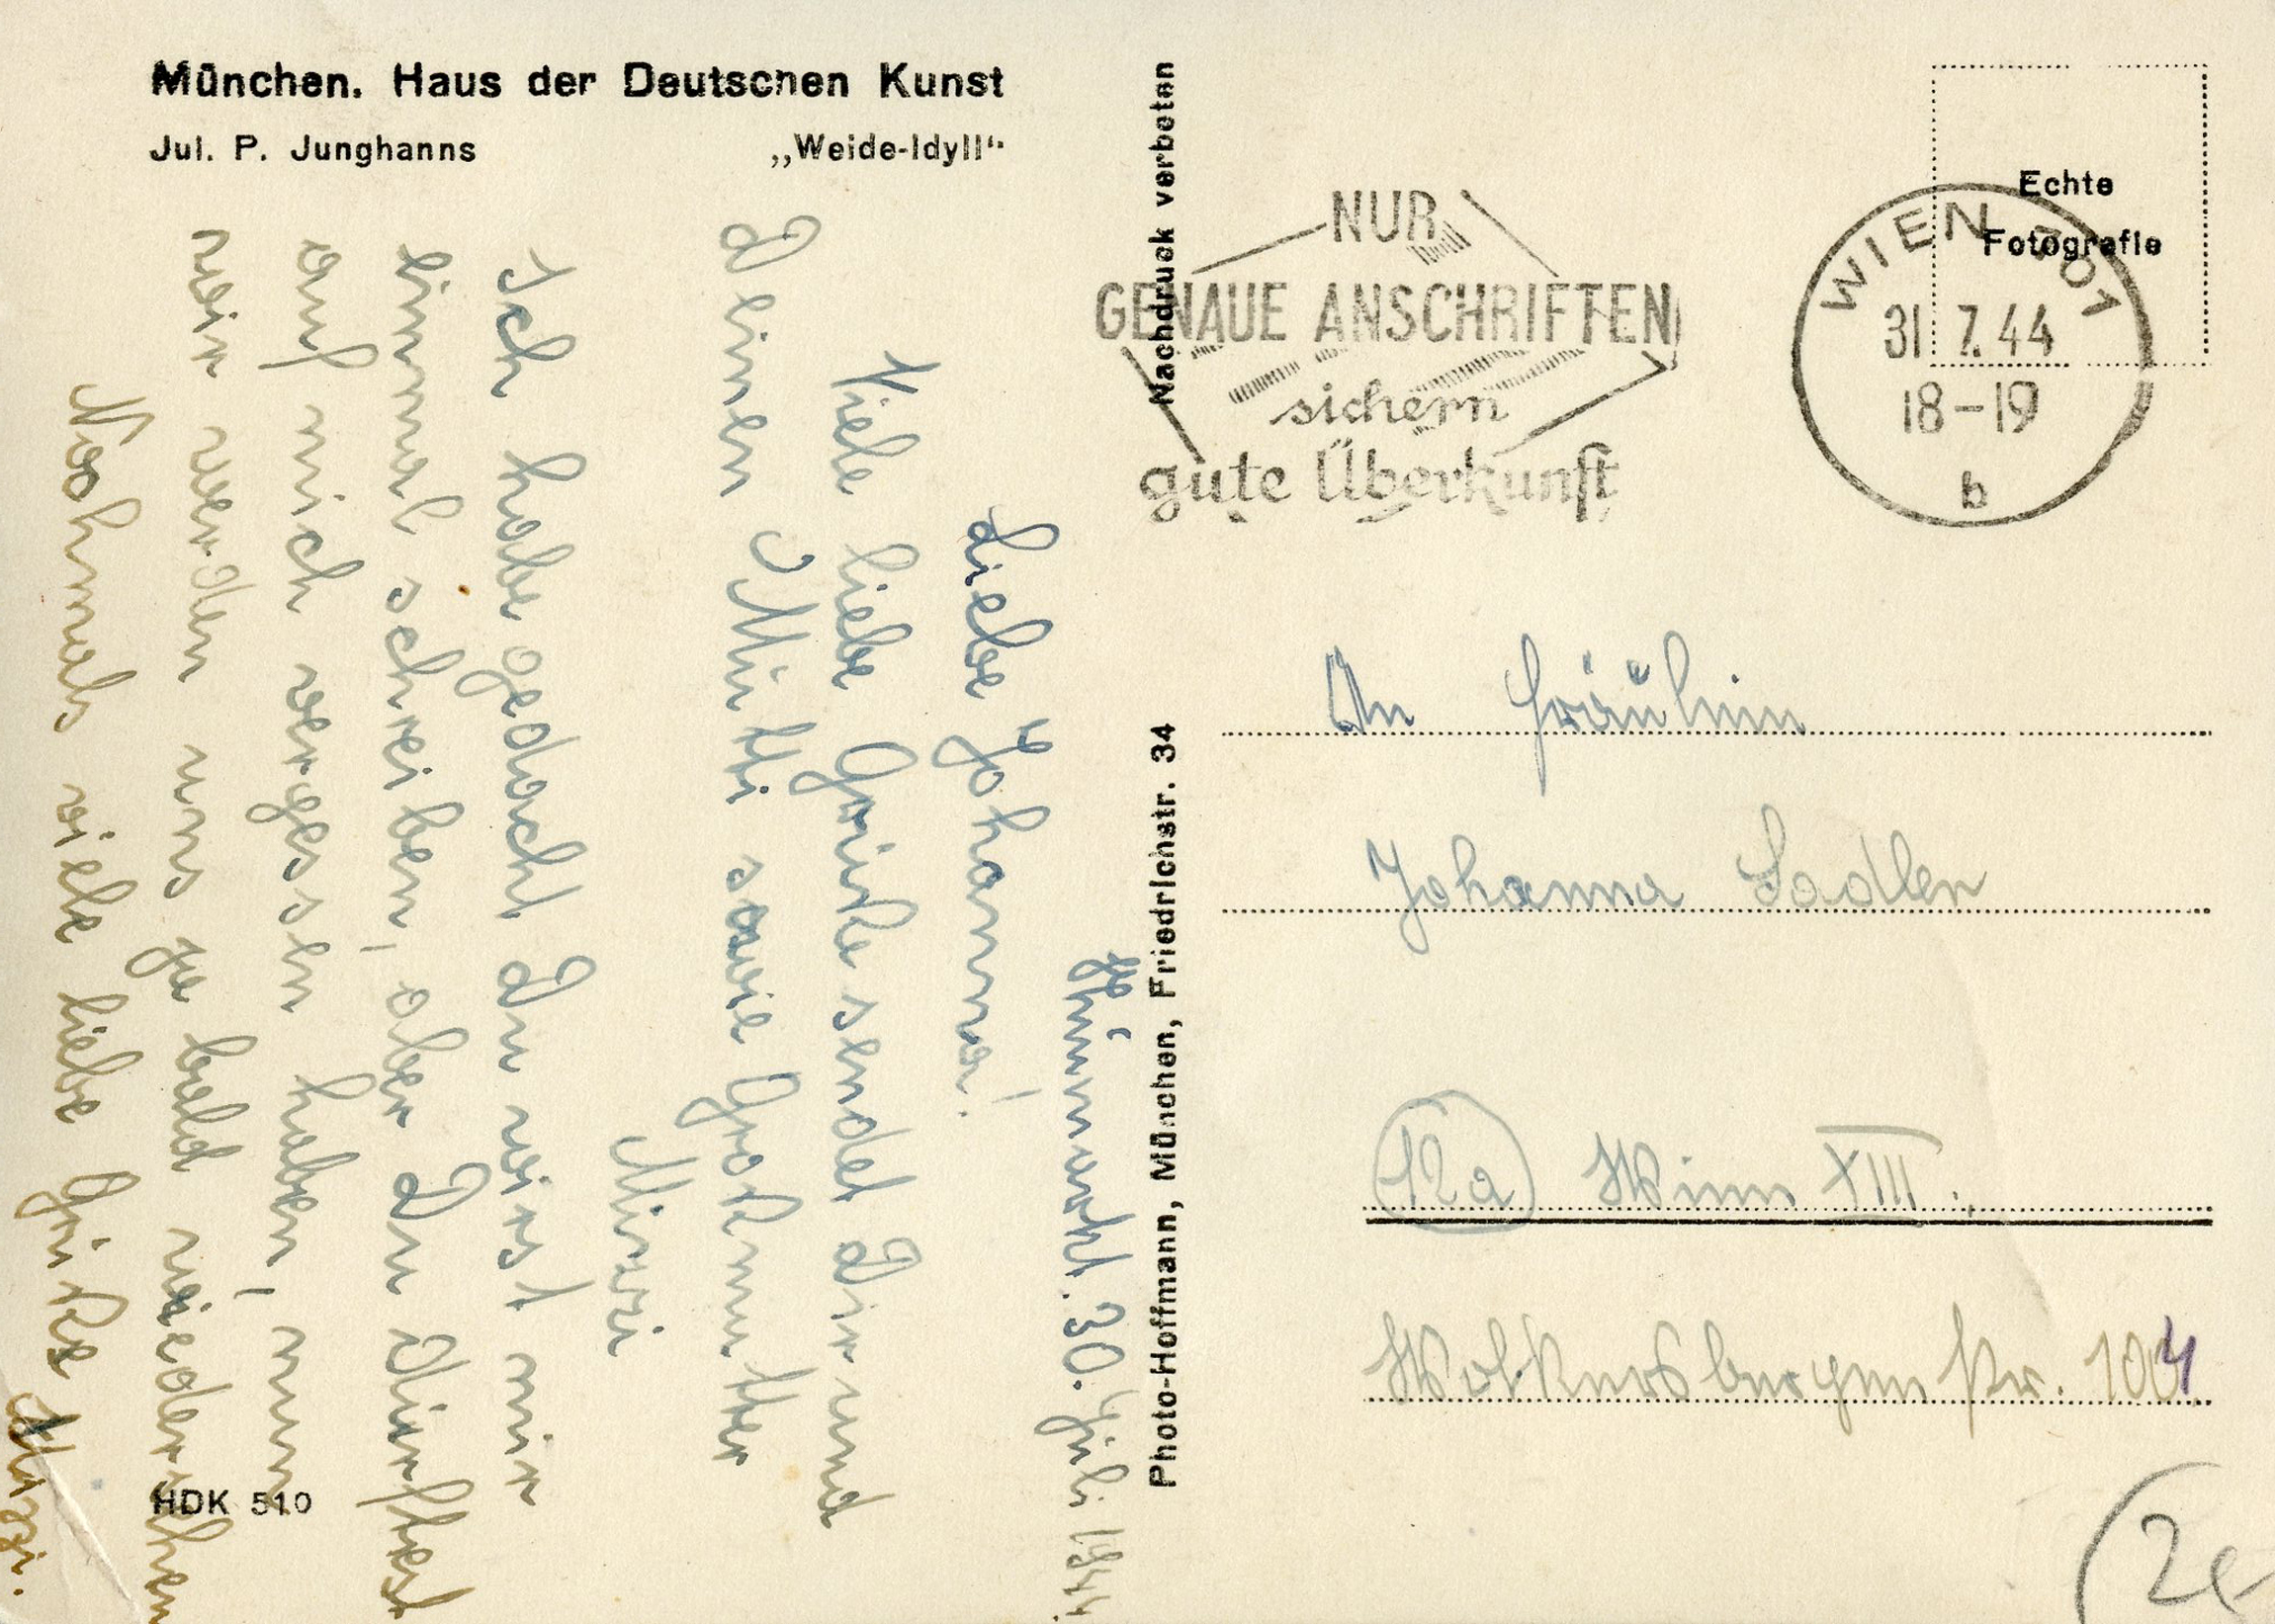 München. Haus der Deutschen Kunst
Jul. P. Junghanns „Weide-Idyll“
30. Juli 1944.
Liebe Johanna!
Viele liebe Grüße sendet Dir und
Deinen Mutti sowie Großmutter
Mirzi
Ich habe gedacht Du wirst mir
einmal schreiben, aber Du dürftest
auf mich vergessen haben, nun
wir werden uns ja bald wiedersehen
Nochmals viele liebe Grüße Mirzi.
HDK 510
Nachdruck verbeten
Photo-Hoffmann, München, Friedrichstr. 34
NUR
GENAUE ANSCHRIFTEN
sichern
gute Überkunft
Echte
Fotografie
WIEN 101
31.7.44
18-19
b
An Fräulein
Johanna Sadler
12a Wien XIII.
Wolkersbergenstr. 104
2e